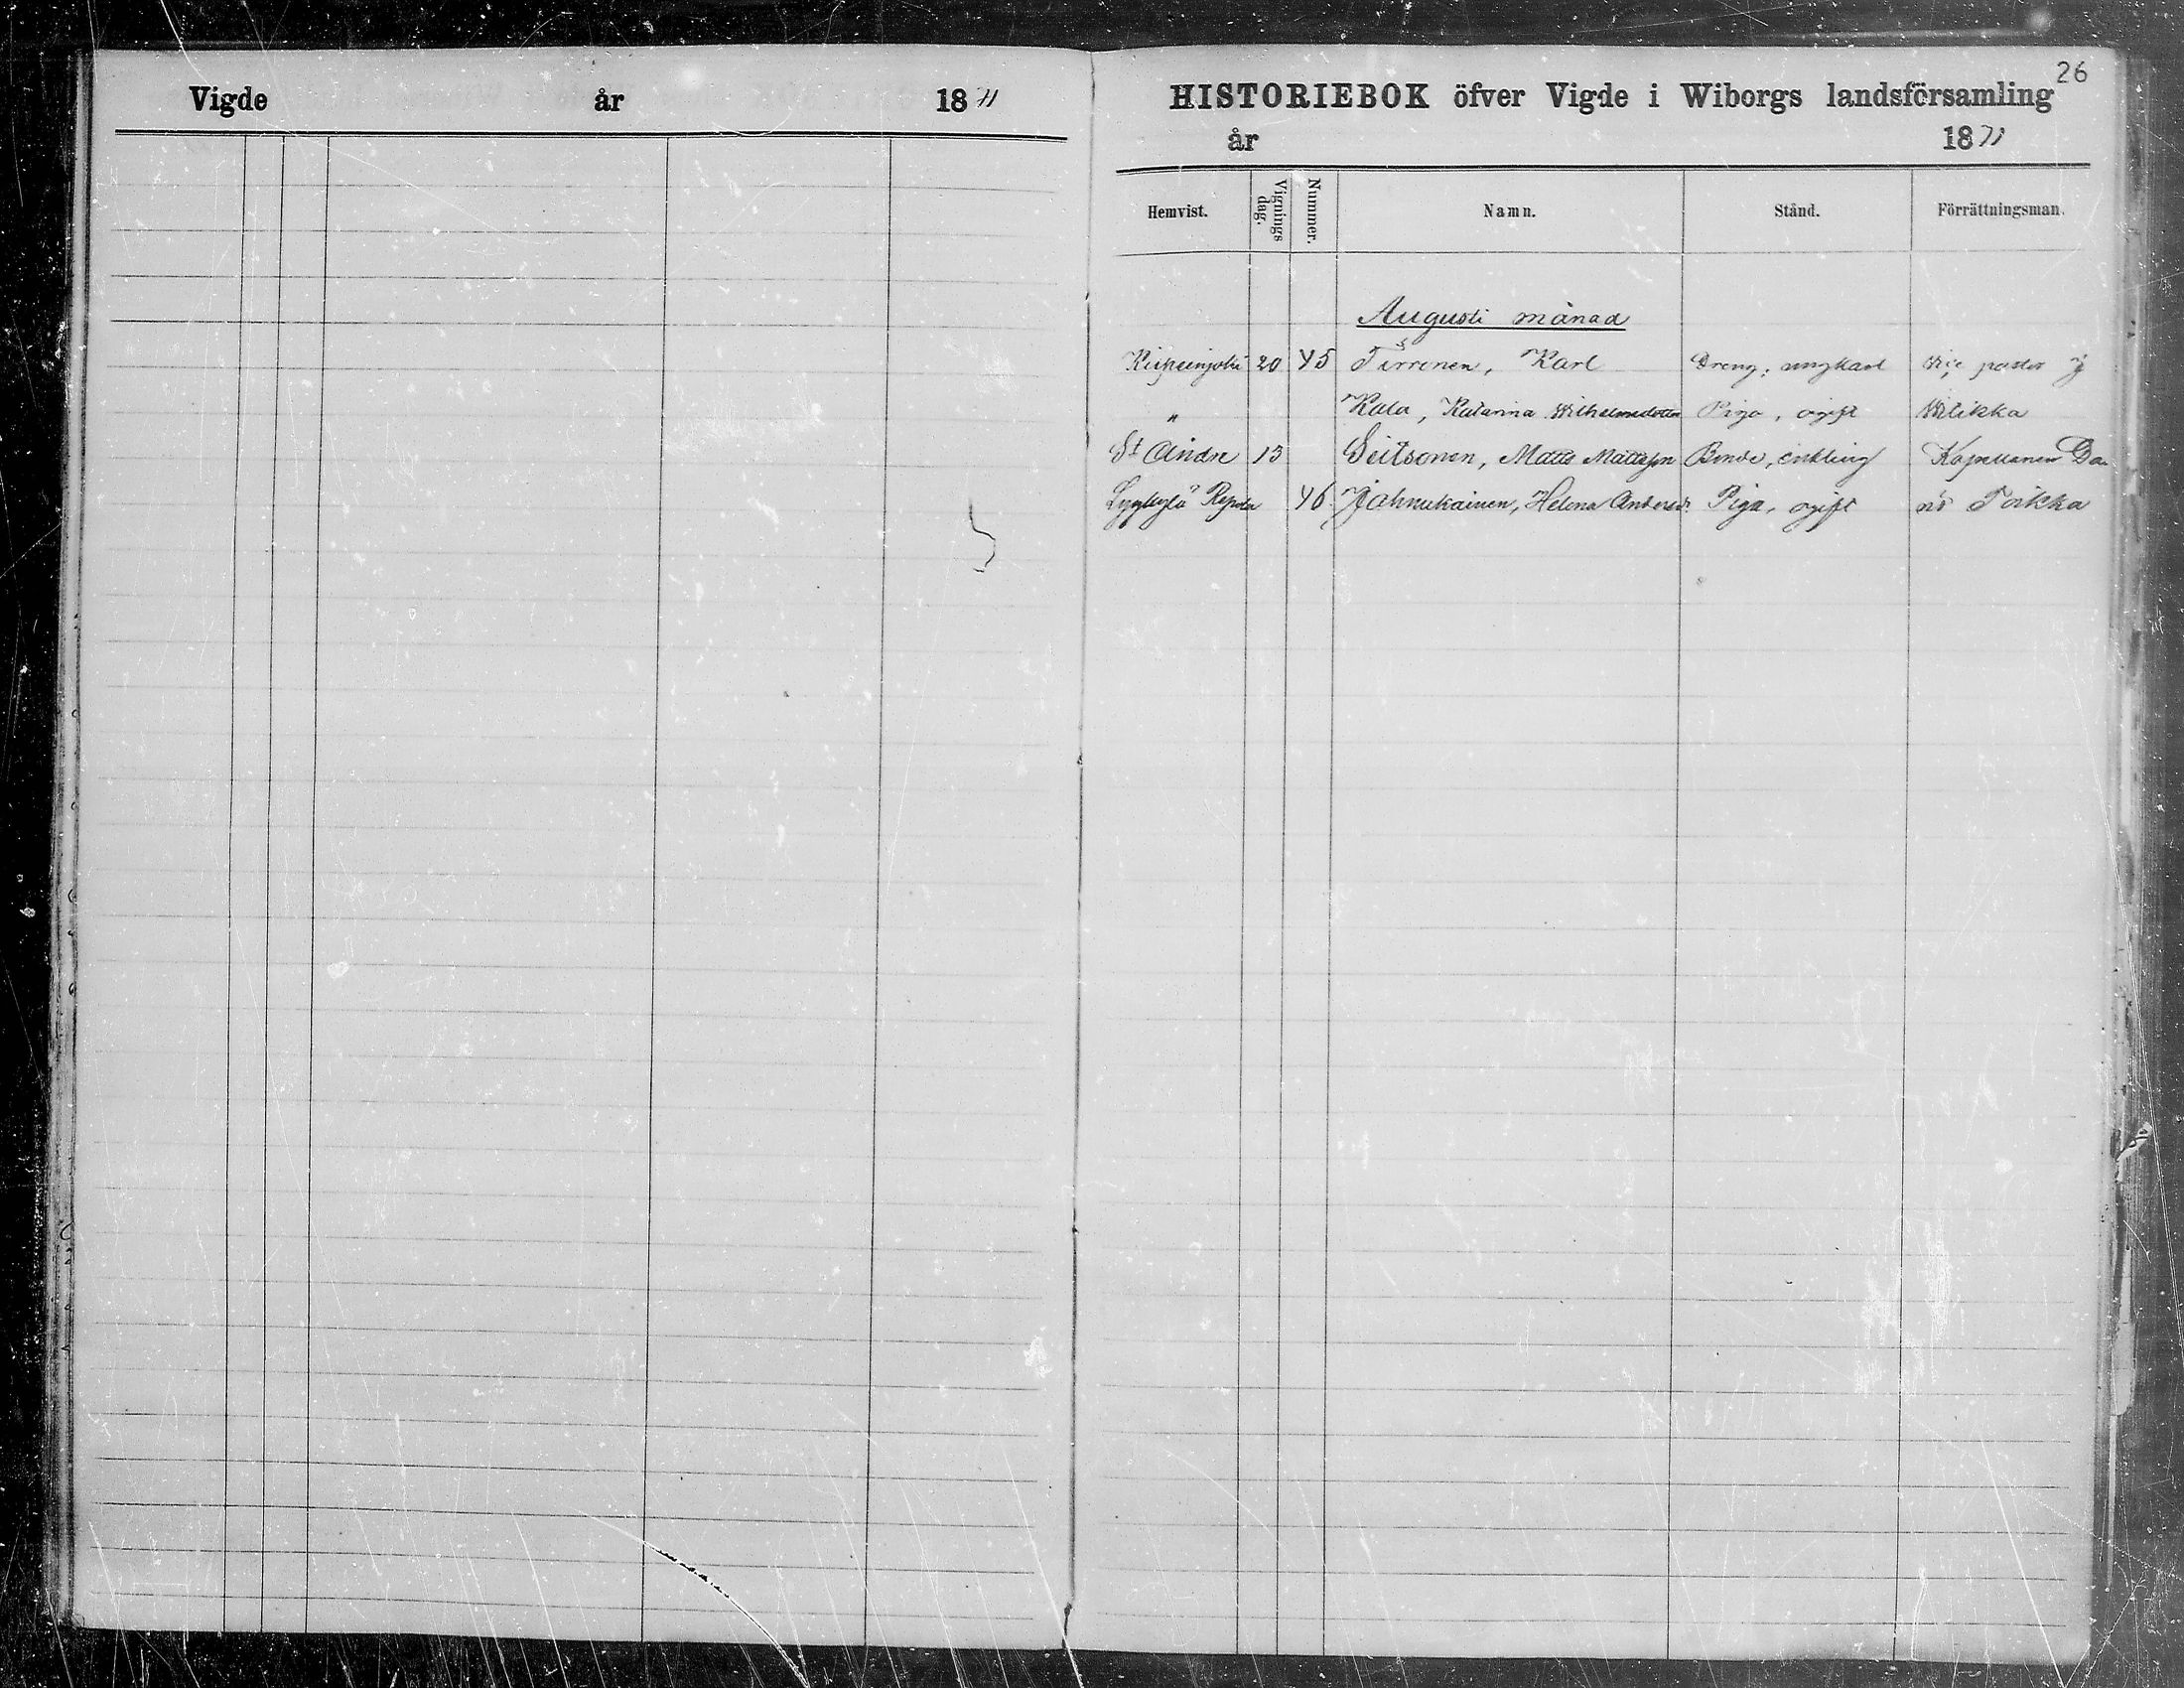 Vigde år 1871
26
HISTORIEBOK öfver Vigde i Wiborgs landsförsamling
år 1871
Hemvist. Vignings dag. Nummer. Namn. Stånd. Förrättningsman.
Augusti månad
20 45 Tirronen, Karl Dreng, ungkarl Vice pastor
" Kala, Katarina Wilhelmsdotter Piga, ogift Wilikka
St Andre 13 Seitsonen, Matts Mattsson Bonde, enkling Kapellanen Da-
Repola 46 Jäähnukainen, Helena Andersdr. Piga, ogift Toikka